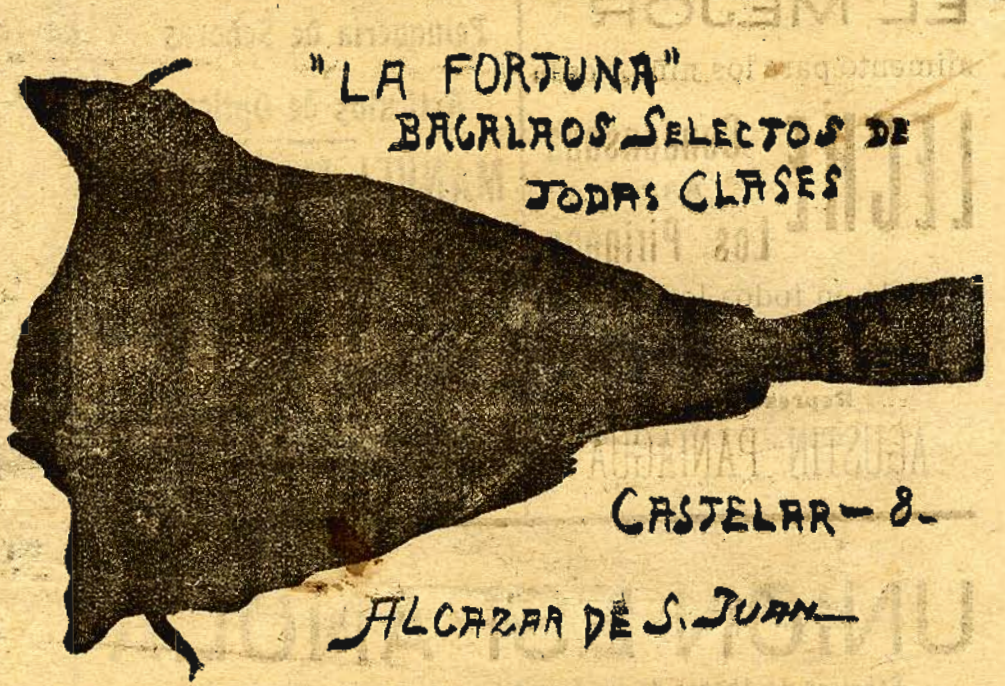 "LA FORTUNA"
BACALAOS SELECTOS DE
TODAS CLASES
CASTELAR - 8.
ALCAZAR DE S. JUAN